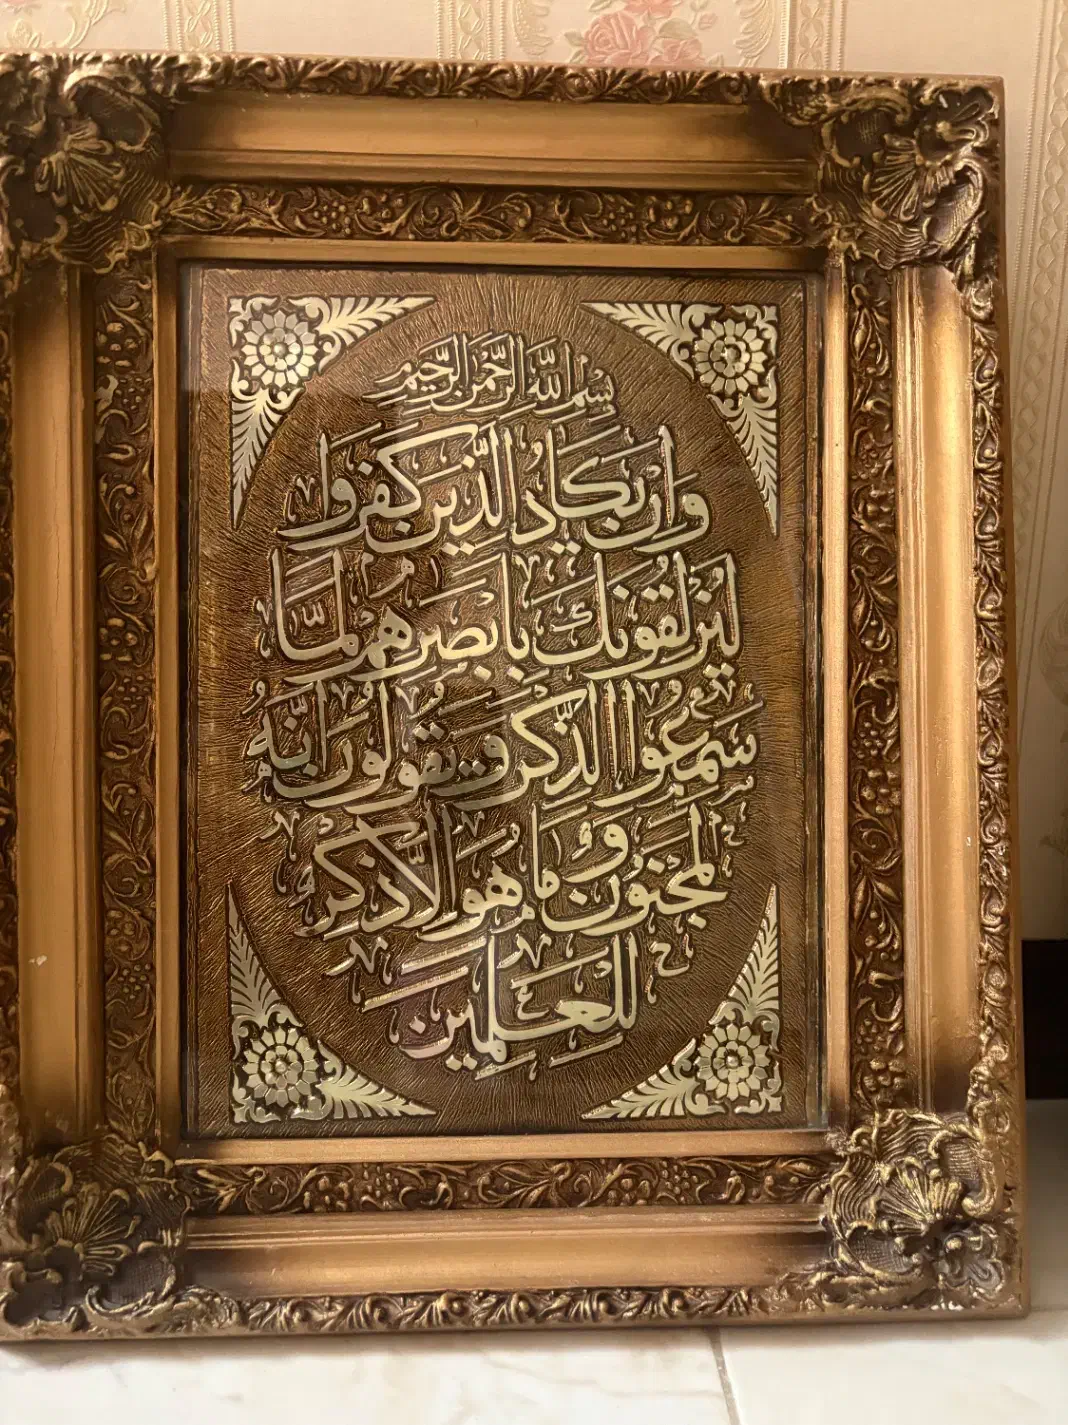 بِسْمِ اللَّهِ الرَّحْمَنِ الرَّحِيمِ
وَاِن يَكَادُ الَّذِينَ كَفَرُوا
لَيُزْلِقُونَكَ بِاَبْصَرِهِمْ لَمَّا
سَمِعُوا الذِّكْرَ وَيَقُولُونَ اِنَّهُ
لَمَجْنُونٌ وَمَا هُوَ اِلَّا ذِكْرٌ
لِلْعَلَمِينَ